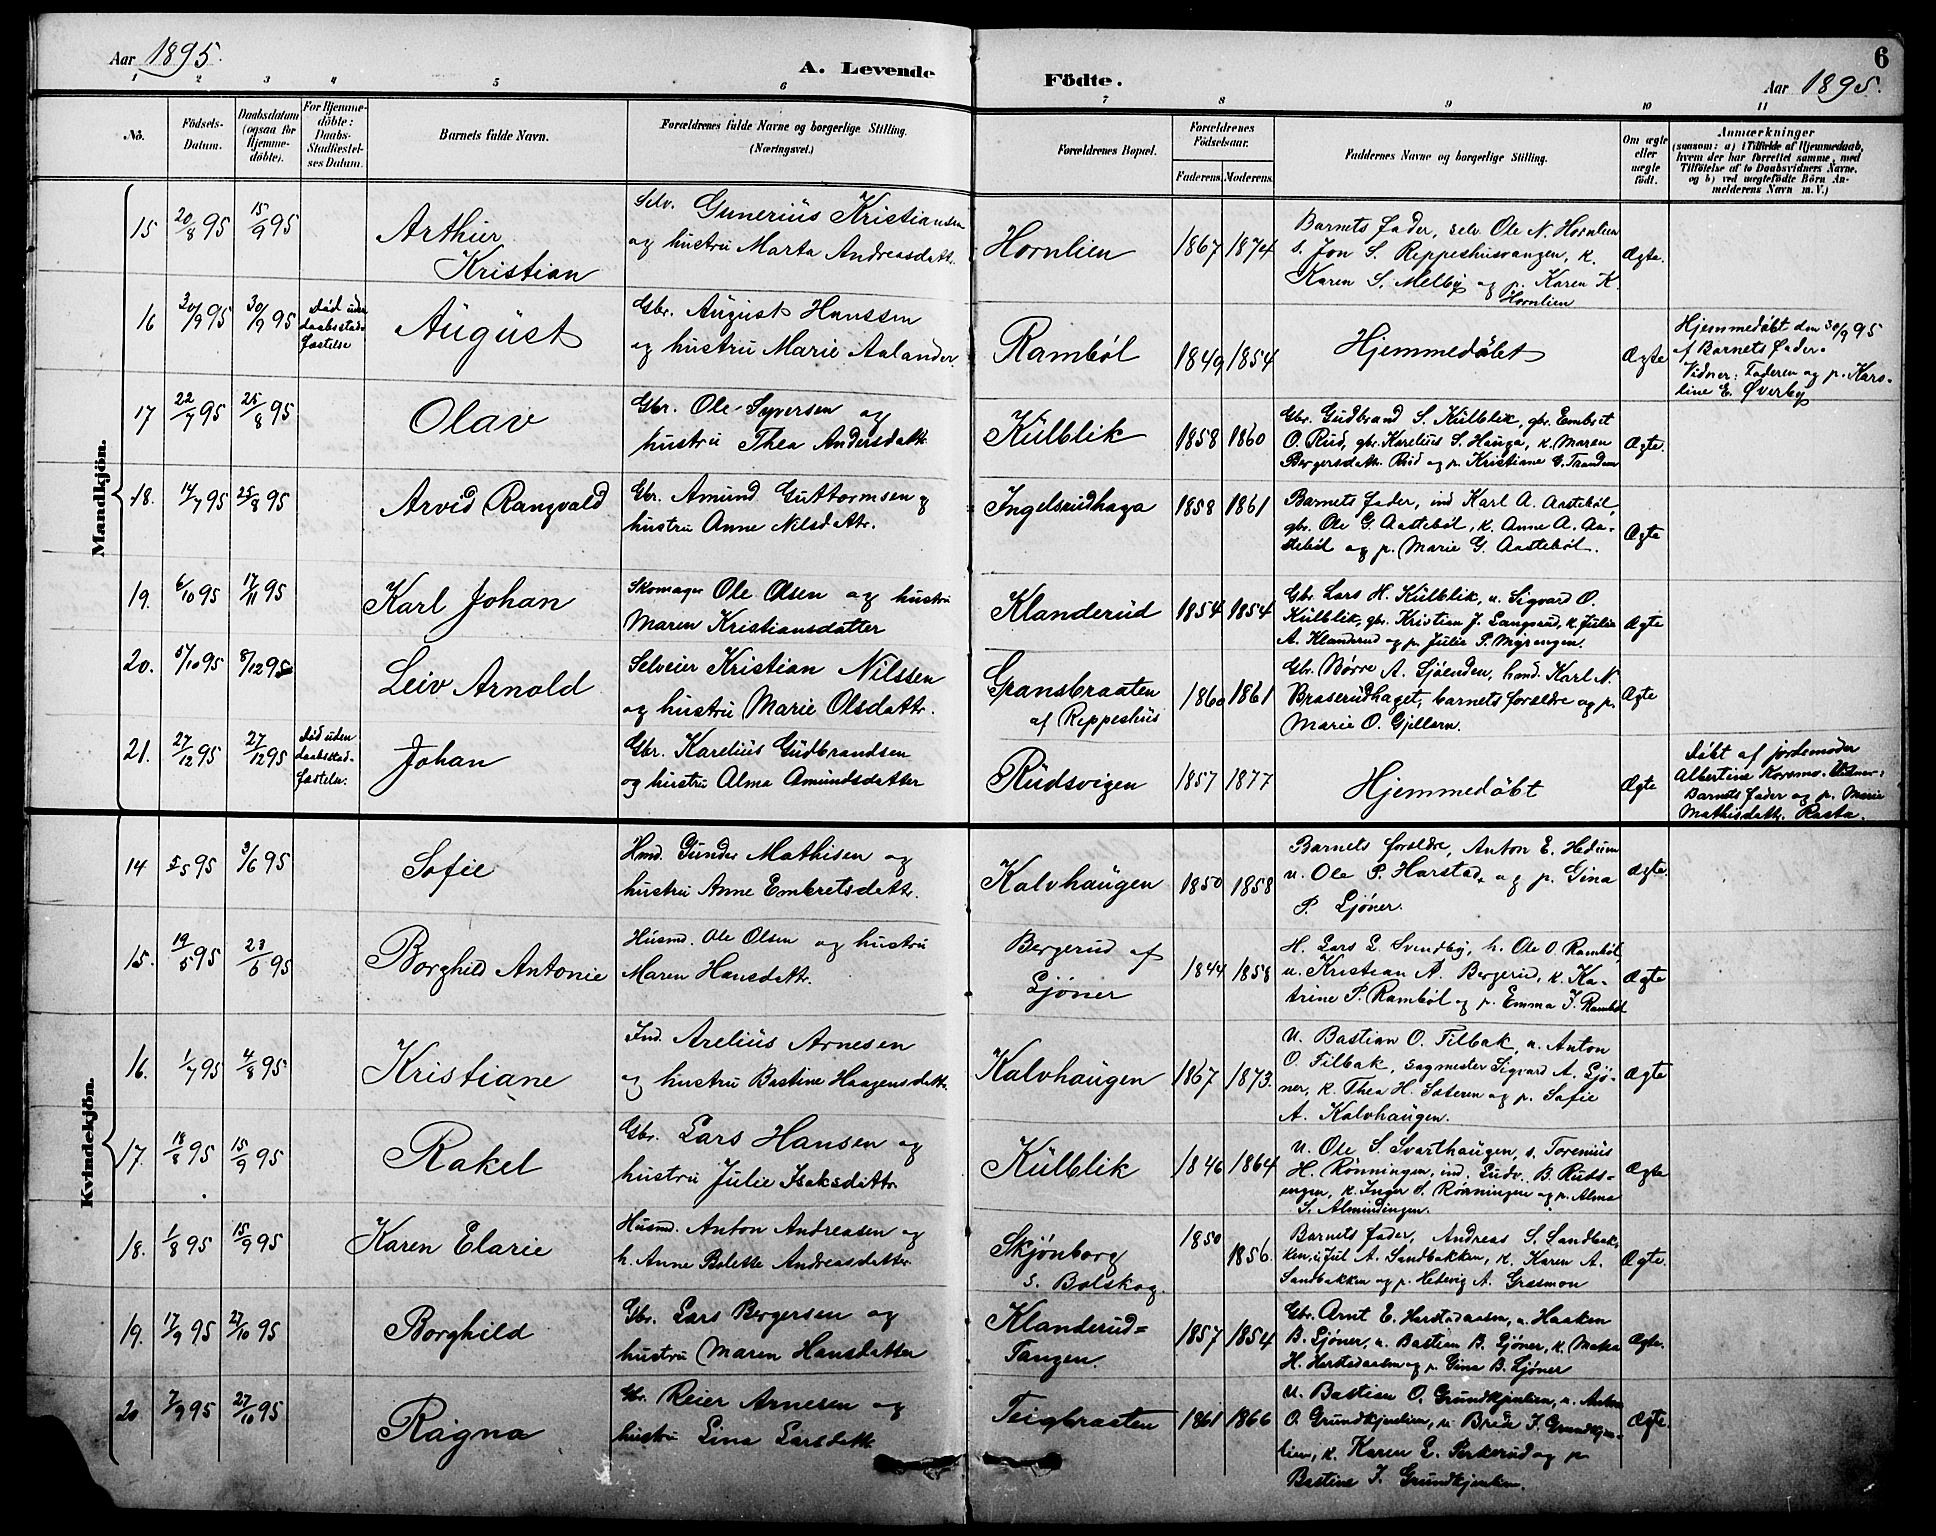 Aar 1895.
A. Levende Födte.
6
Aar 1895.
1 2 3 4 5 6 7 8 9 10 11
No.
Födsels-Datum.
Daabsdatum (ogsaa for Hjemmedöbte).
For Hjemmedöbte: Daabs-Stadfæstelses Datum.
Barnets fulde Navn.
Forældrenes fulde Navne og borgerlige Stilling. (Næringsvei.)
Forældrenes Bopæl.
Forældrenes Födselsaar.
Faderens. Moderens.
Faddernes Navne og borgerlige Stilling.
Om ægte eller uægte födt.
Anmærkninger
(saasom: a) i Tilfælde af Hjemmedaab, hvem der har forrettet samme, med Tilföielse af to Daabsvidners Navne. og b) ved uægtefödte Börn Anmelderens Navn m. V.)
Mandkjön.
15 20/8 95 15/9 95 Arthur Kristian
Selv. Gunerius Kristiansen
og hustru Marta Andreasdatt.
Hornlien 1867 1874
Barnets fader, selv. Ole N. Hornlien
s. Jon S. Reppeshusvangen, k.
Karen S. Melby og p. Karen K.
Hornlien
Ægte.
16 30/9 95 30/9 95 Död uden daabsstadfæstelse
August
Gbr. August Hanssen
og hustru Marie Aalander.
Rambøl 1849 1854
Hjemmedøbt
Ægte
Hjemmedøbt den 30/9 95
af Barnets Fader.
Vidner: Faderen og p. Karoline E. Øverby
17 22/7 95 25/8 95 Olav
Gbr. Ole Syversen og
hustru Thea Andersdattr.
Külblik 1858 1860
Gbr. Gudbrand S. Külblik, gbr. Embret
O. Rud, gbr. Karelius S. Hauga, k. Maren
Bergersdattr. Rud og p. Kristiane
Ægte.
18. 14/7 95 25/8 95 Arvid Rangvald
Gbr. Amund Guttormsen og
hustru Anne Nilsdattr.
Ingelsrudhaga 1858 1861
Barnets fader, ind Karl A. Aastebøl,
gbr. Ole G. Aastebøl, k. Anne A. Aa-
stebøl og p. Marie G. Aastebøl.
Ægte
19. 6/10 95 17/11 95 Karl Johan
Skomager Ole Olsen og hustru
Maren Kristiansdatter
Klanderud 1854 1854
Gbr. Lars H. Külblik, u. Sigvard O.
Külblik, gbr. Kristian J. Langsrud, k. Julia
A. Klanderud og p. Julie P. Myrengen.
Ægte
20. 5/10 95 8/12 95 Leiv Arnold
Selveier Kristian Nilssen
og hustru Marie Olsdattr.
Gransbraaten
af Reppeshüs
1860 1861
Gbr. Børre A. Sjøenden, hand. Karl N.
Braserudhaget, barnets forældre og p.
Marie O. Gjellern.
Ægte
21. 27/12 95 27/12 95 Död uden daabsstadfæstelse.
Johan
Gbr. Karelius Gudbrandsen
og hustru Alma Amundsdatter
Rudsvigen 1857 1877
Hjemmedøbt
Ægte
Døbt af jordemoder
Albertine Koremo. Vidner:
Barnets fader og p. Marie
Mathisdattr. Rasta.
Kvindekjön.
14 5/5 95 3/6 95 Sofie
Hmd. Gunder Mathisen og
hustru Anne Embretsdattr.
Kalvhaugen 1850 1858
Barnets forældre, Anton E. Hedum
u. Ole P. Harstad, og p. Gina
P. Ljøner.
Ægte.
15. 19/5 95 23/6 95 Borghild Antonie
Husmd. Ole Olsen og hustru
Maren Hansdattr.
Bergerud af
Ljøner
1844 1858
H. Lars L. Svendby, h. Ole O. Rambøl,
u. Kristian A. Bergerud, k. Ka-
trine P. Rambøl og p. Emma J. Rambøl
Ægte
16. 1/7 95 4/8 95 Kristiane
Ind. Arelius Arnesen
og hustru Bastine Haagensdattr.
Kalvhaugen 1867 1873.
U. Bastian O. Filbak, u. Anton
O. Filbak, sagmester Sigvard A. Ljø-
ner, k. Thea H. Sæteren og p. Sofie
A. Kalvhaugen.
Ægte
17. 18/8 95 15/9 95 Rakel
Gbr. Lars Hansen og
hustru Julie Isaksdattr.
Külblik 1846 1864
U. Ole S. Svarthaugen, s. Torenius
H. Rønningen, ind. Ludv. B. Ruds-
engen, k. Inger S. Rønningen og p. Alma
S. Almindingen.
Ægte
18. 1/8 95 15/9 95 Karen Elarie
Husmd. Anton Andreasen og
h. Anne Bolette Andreasdatter
Skjønborg
s. Bolskog.
1850 1856.
Barnets fader, Andreas S. Sandbak-
ken, u. Jul A. Sandbakken, k. Karen A.
Sandbakken og p. Hedevig A. Grasmon
Ægte.
19. 17/9 95 27/10 95 Borghild
Gbr. Lars Bergersen og
hustru Maren Hansdatter
Klanderud=
Tangen.
1857 1854
Gbr. Arnt E. Harstadaasen, u. Haaken
B. Ljøner, u. Bastian B. Ljøner, k. Matea
H. Harstadaasen og p. Gina B. Ljøner
Ægte.
20 7/9 95 27/10 95 Ragna
Gbr. Reier Arnesen og
hustru Lina Larsdattr.
Teigbraaten 1861 1866
U. Bastian O. Grundkjenlien, u. Anton
O. Grundkjenlien, u. Brede J. Grundkjen-
lien, k. Karen L. Perkerud og p.
Bastine J. Grundkjenlien.
Ægte.